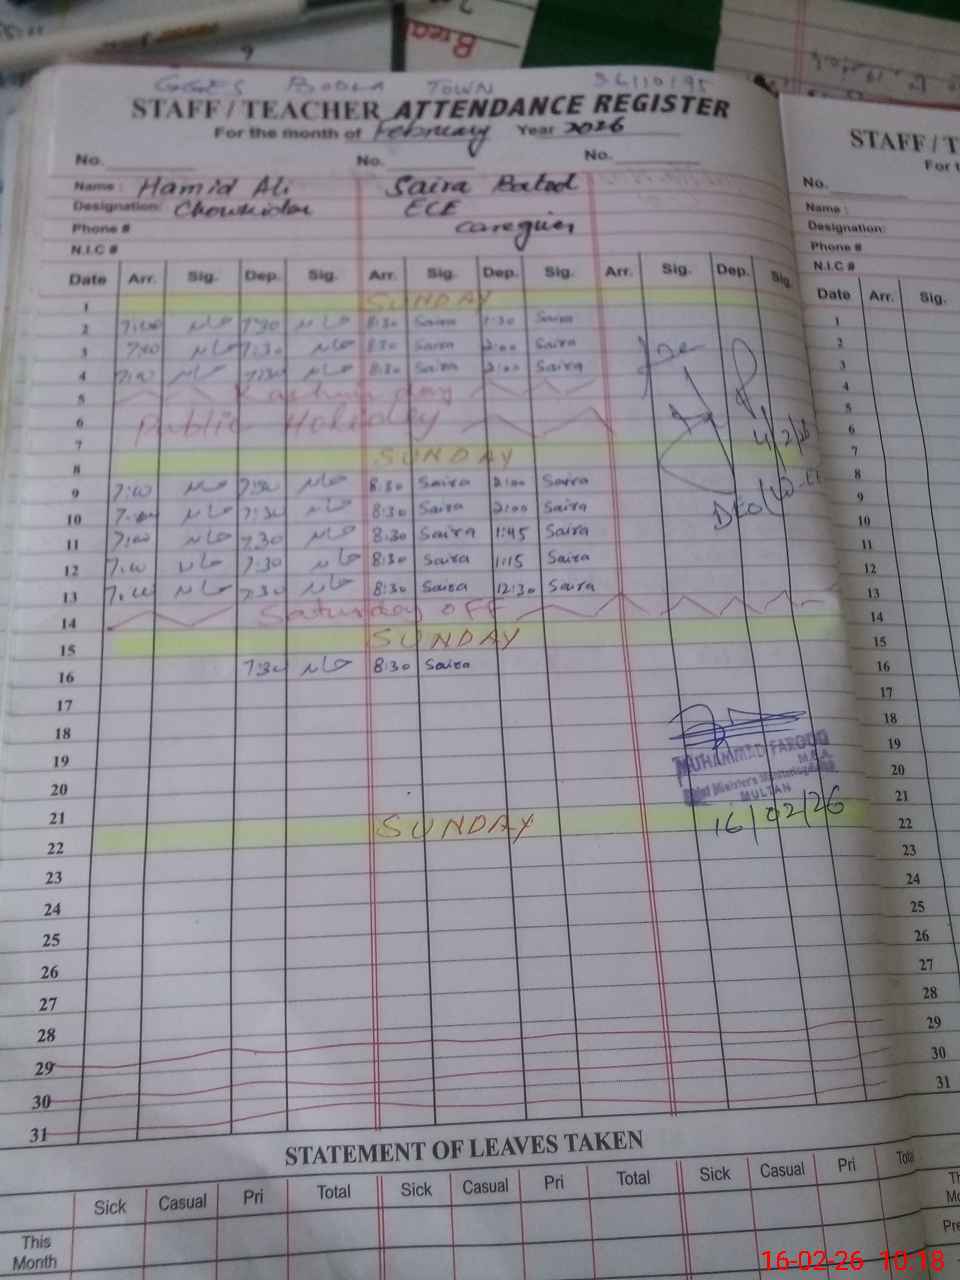 GGES BODLA TOWN 36110195
STAFF / TEACHER ATTENDANCE REGISTER
For the month of February Year 2026
No. No. No.
Name : Hamid Ali Saira Batool
Designation: Chowkidar ECE
Phone # caregiver
N.I.C #
Date Arr. Sig. Dep. Sig. Arr. Sig. Dep. Sig. Arr. Sig. Dep. Sig.
1 SUNDAY
2 7:00 حامد 7:30 حامد 8:30 Saira 1:30 Saira
3 7:00 حامد 7:30 حامد 8:30 Saira 2:00 Saira
4 7:00 حامد 7:30 حامد 8:30 Saira 2:00 Saira
5 Kashmir day
6 Public Holiday
7
8 SUNDAY
4/2/26
9 7:00 حامد 7:30 حامد 8:30 Saira 2:00 Saira
10 7:00 حامد 7:30 حامد 8:30 Saira 2:00 Saira
11 7:00 حامد 7:30 حامد 8:30 Saira 1:45 Saira
12 7:00 حامد 7:30 حامد 8:30 Saira 1:15 Saira
13 7:00 حامد 7:30 حامد 8:30 Saira 12:30 Saira
14 Saturday OFF
15 SUNDAY
16 7:30 حامد 8:30 Saira
17
18
19
20
21
22 SUNDAY
MUHAMMAD FAROOQ
M.E.A.
Chief Minister's Monitoring
MULTAN
16/02/26
23
24
25
26
27
28
29
30
31
STATEMENT OF LEAVES TAKEN
Sick Casual Pri Total Sick Casual Pri Total Sick Casual Pri Total
This
Month
STAFF / T
For t
No.
Name :
Designation:
Phone #
N.I.C #
Date Arr. Sig.
1
2
3
4
5
6
7
8
9
10
11
12
13
14
15
16
17
18
19
20
21
22
23
24
25
26
27
28
29
30
31
16-02-26 10:18